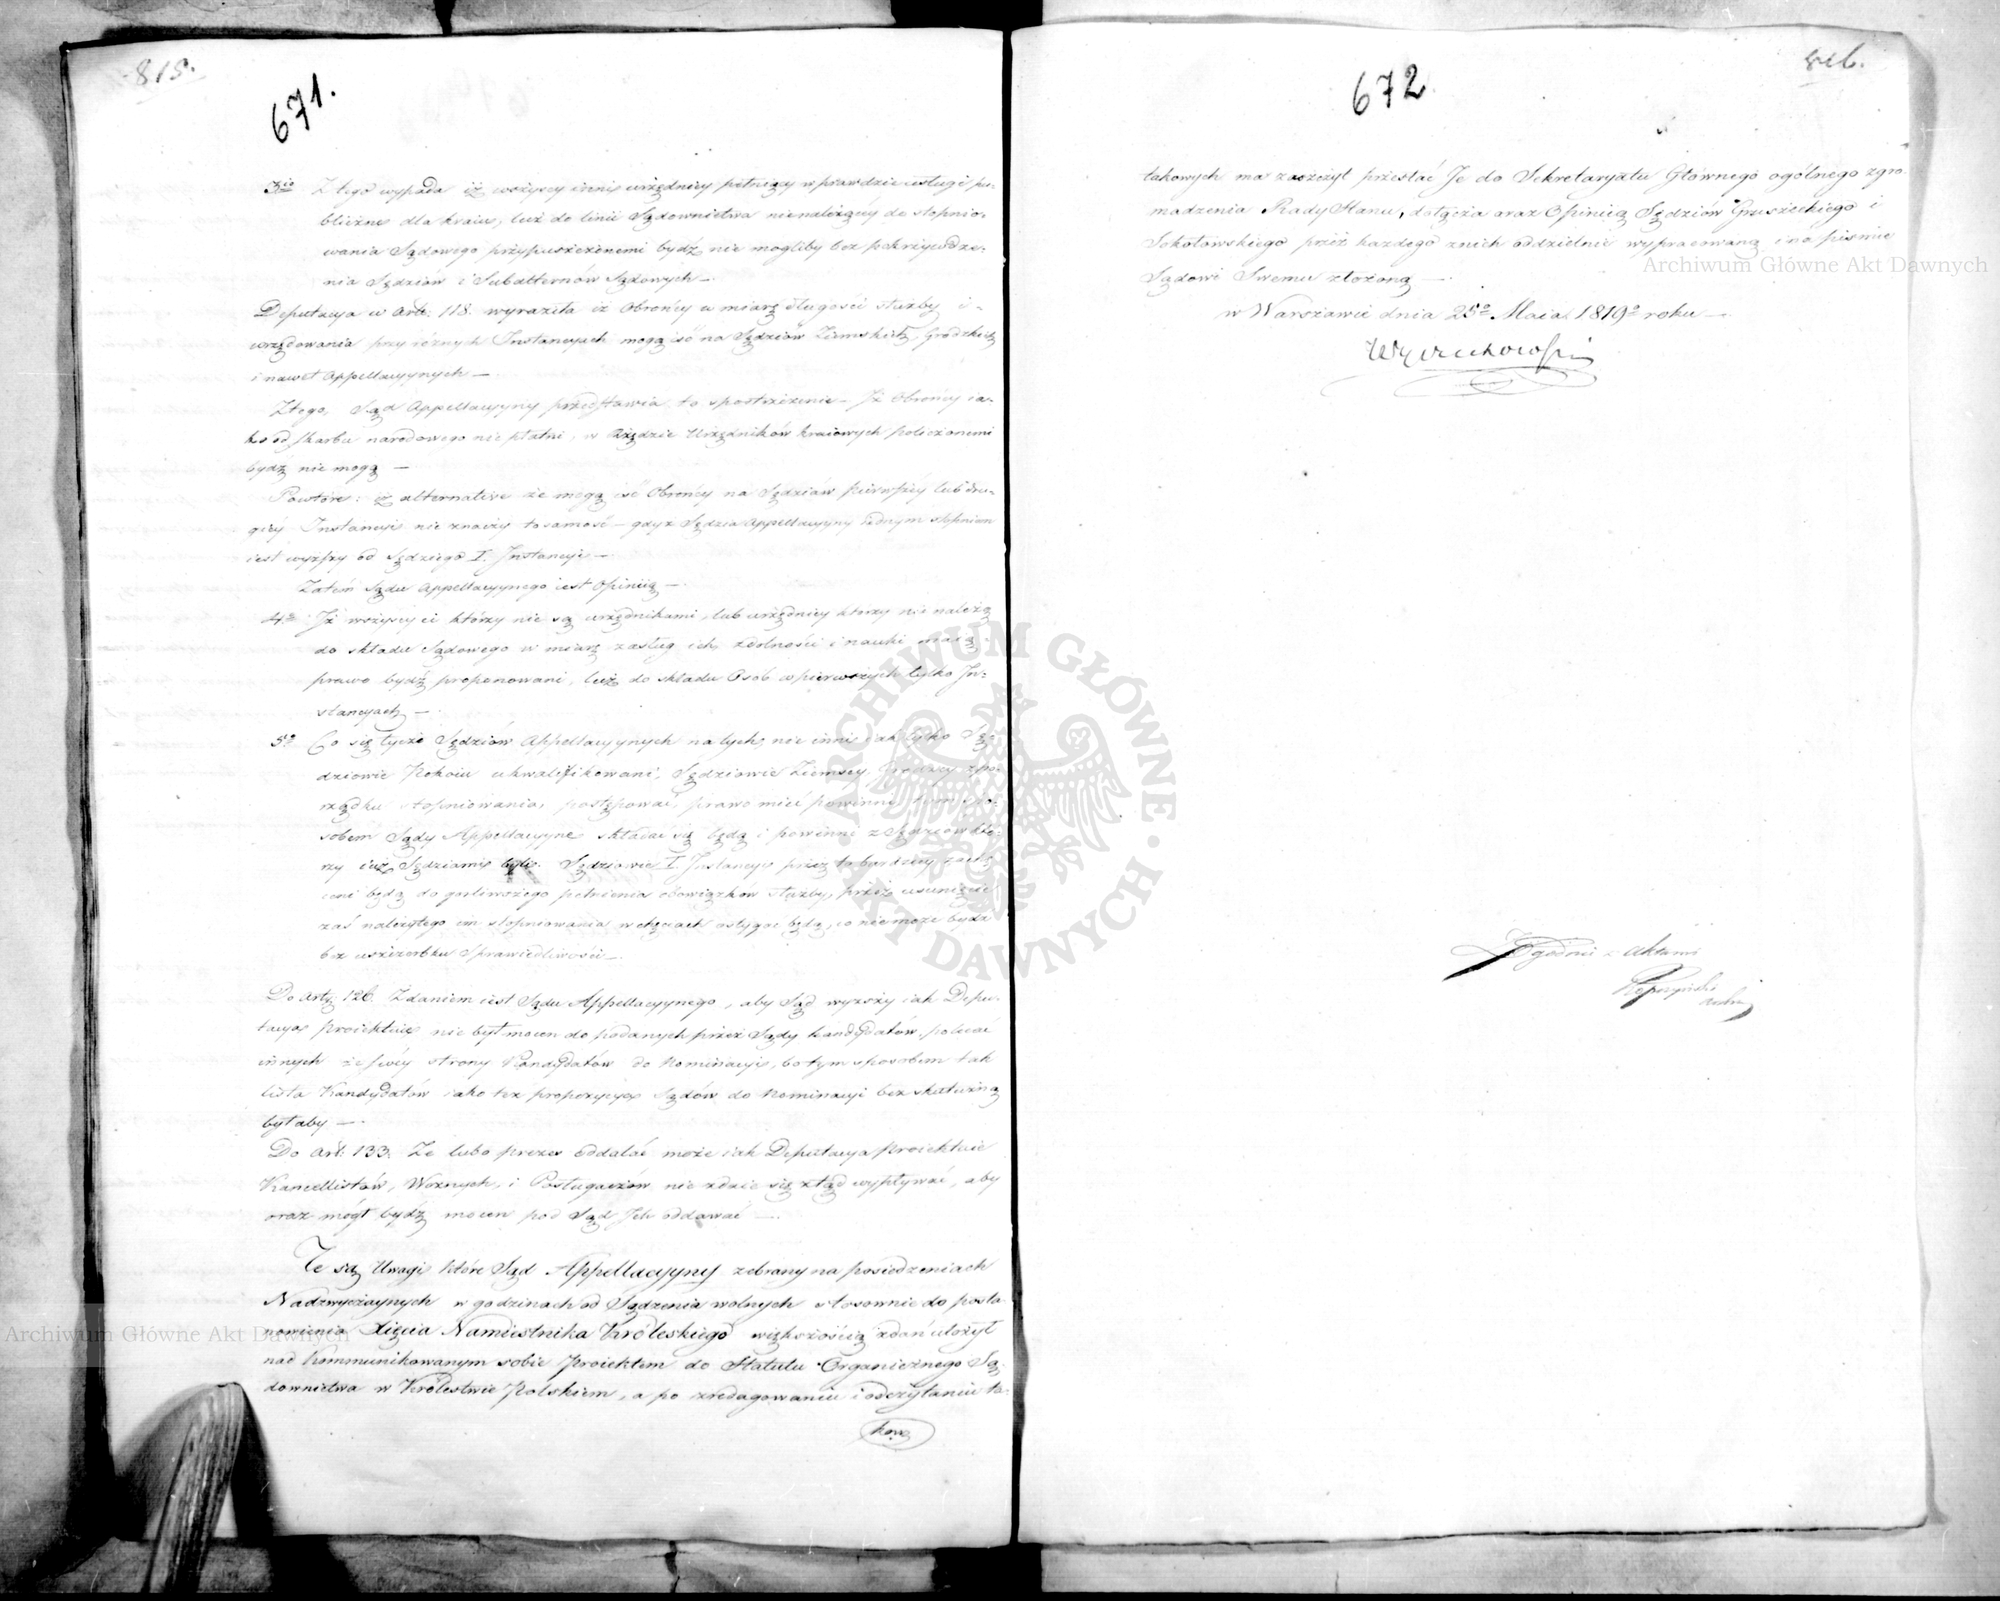 815.
671.
3tio Z tego wypada iż wszyscy inni urzędnicy pełniący wprawdzie usługi pu-
bliczne dla kraiu, lecz do linii Sądownictwa nienależący do stopnio-
wania Sądowego przypuszczonemi bydź nie mogliby bez pokrzywdze-
nia Sędziów i Subalternów Sądowych —
Deputacya w Arte: 118. wyraziła iż Obrońcy w miarę długości służby i
urzędowania przy różnych Instancyach mogą iść na Sędziów Ziemskich, Grodzkich
i nawet Appellacyynych —
Z tego, Sąd Appellacyyny przedstawia to spostrzeżenie — Iż Obrońcy ia-
ko od skarbu narodowego nie płatni, w Rzędzie Urzędników kraiowych policzonemi
bydź nie mogą —
Powtóre: iż alternative że mogą iść Obrońcy na Sędziów pierwszey lub dru-
giéy Instancyi nie znaczy tosamość — gdyż Sędzia Appellacyyny iednym stopniem
iest wyższy od Sędziego I. Instancyi —
Zatém Sądu Appellacyynego iest Opiniią —
4to Iż wszyscy ci którzy nie są urzędnikami, lub urzędnicy którzy nie należą
do składu Sądowego w miarę zasług ich, zdolności i nauki maią
prawo bydź proponowani, lecz do składu Osób w pierwszych tylko In-
stancyach —
5to Co się tycze Sędziów Appellacyynych na tych, nie inni iak tylko Sę-
dziowie Pokoiu ukwalifikowani, Sędziowie Ziemscy, Grodzcy z po-
rządku stopniowania, postępować, prawo mieć powinni tym spo-
sobem Sądy Appellacyyne składać się będą i powinni z Sędziów któ-
rzy iuż Sędziami byli. Sędziowie I. Instancyi przez to bardziey zachę-
ceni będą do gorliwszego pełnienia obowiązków służby, przez usunięcie
zaś należytego im stopniowania w chęciach ostygać będą, co nie może bydź
bez uszczerbku Sprawiedliwości —
Do Arty: 126. Zdaniem iest Sądu Appellacyynego, aby Sąd wyższy iak Depu-
tacya proiektuie nie był mocen do podanych przez Sądy kandydatów, polecać
innych ze swéy strony Kandydatów do Nominacyi, bo tym sposobem tak
lista Kandydatów iako też propozycya Sądów do Nominacyi bez skuteczną
byłaby —
Do Art: 133. Że lubo prezes oddalać może iak Deputacya proiektuie
Kancellistów, Woźnych, i Posługaczów nie zdaie się ztąd wypływać, aby
oraz mógł bydź mocen pod Sąd Ich oddawać —
Te są Uwagi które Sąd Appellacyyny zebrany na posiedzeniach
Nadzwyczaynych w godzinach od Sądzenia wolnych stosownie do posta-
nowienia Xięcia Namiestnika Królewskiego większością zdań ułożył
nad kommunikowanym sobie Proiektem do Statutu Organicznego Są-
downictwa w Królestwie Polskiem, a po zredagowaniu i odczytaniu ta-
kowe
816.
672
takowych ma zaszczyt przesłać Je do Sekretaryatu Głównego ogólnego zgro-
madzenia Rady Stanu, dołącza oraz Opiniią Sędziów Gruszeckiego i
Sokołowskiego przez każdego znich oddzielnie wypracowaną i na piśmie
Sądowi Swemu złożoną —
w Warszawie dnia 25o Maia 1819o roku —
Wyczechowski
Zgodno z Aktami
ARCHIWUM GŁÓWNE AKT DAWNYCH
Archiwum Główne Akt Dawnych
Archiwum Główne Akt Dawnych